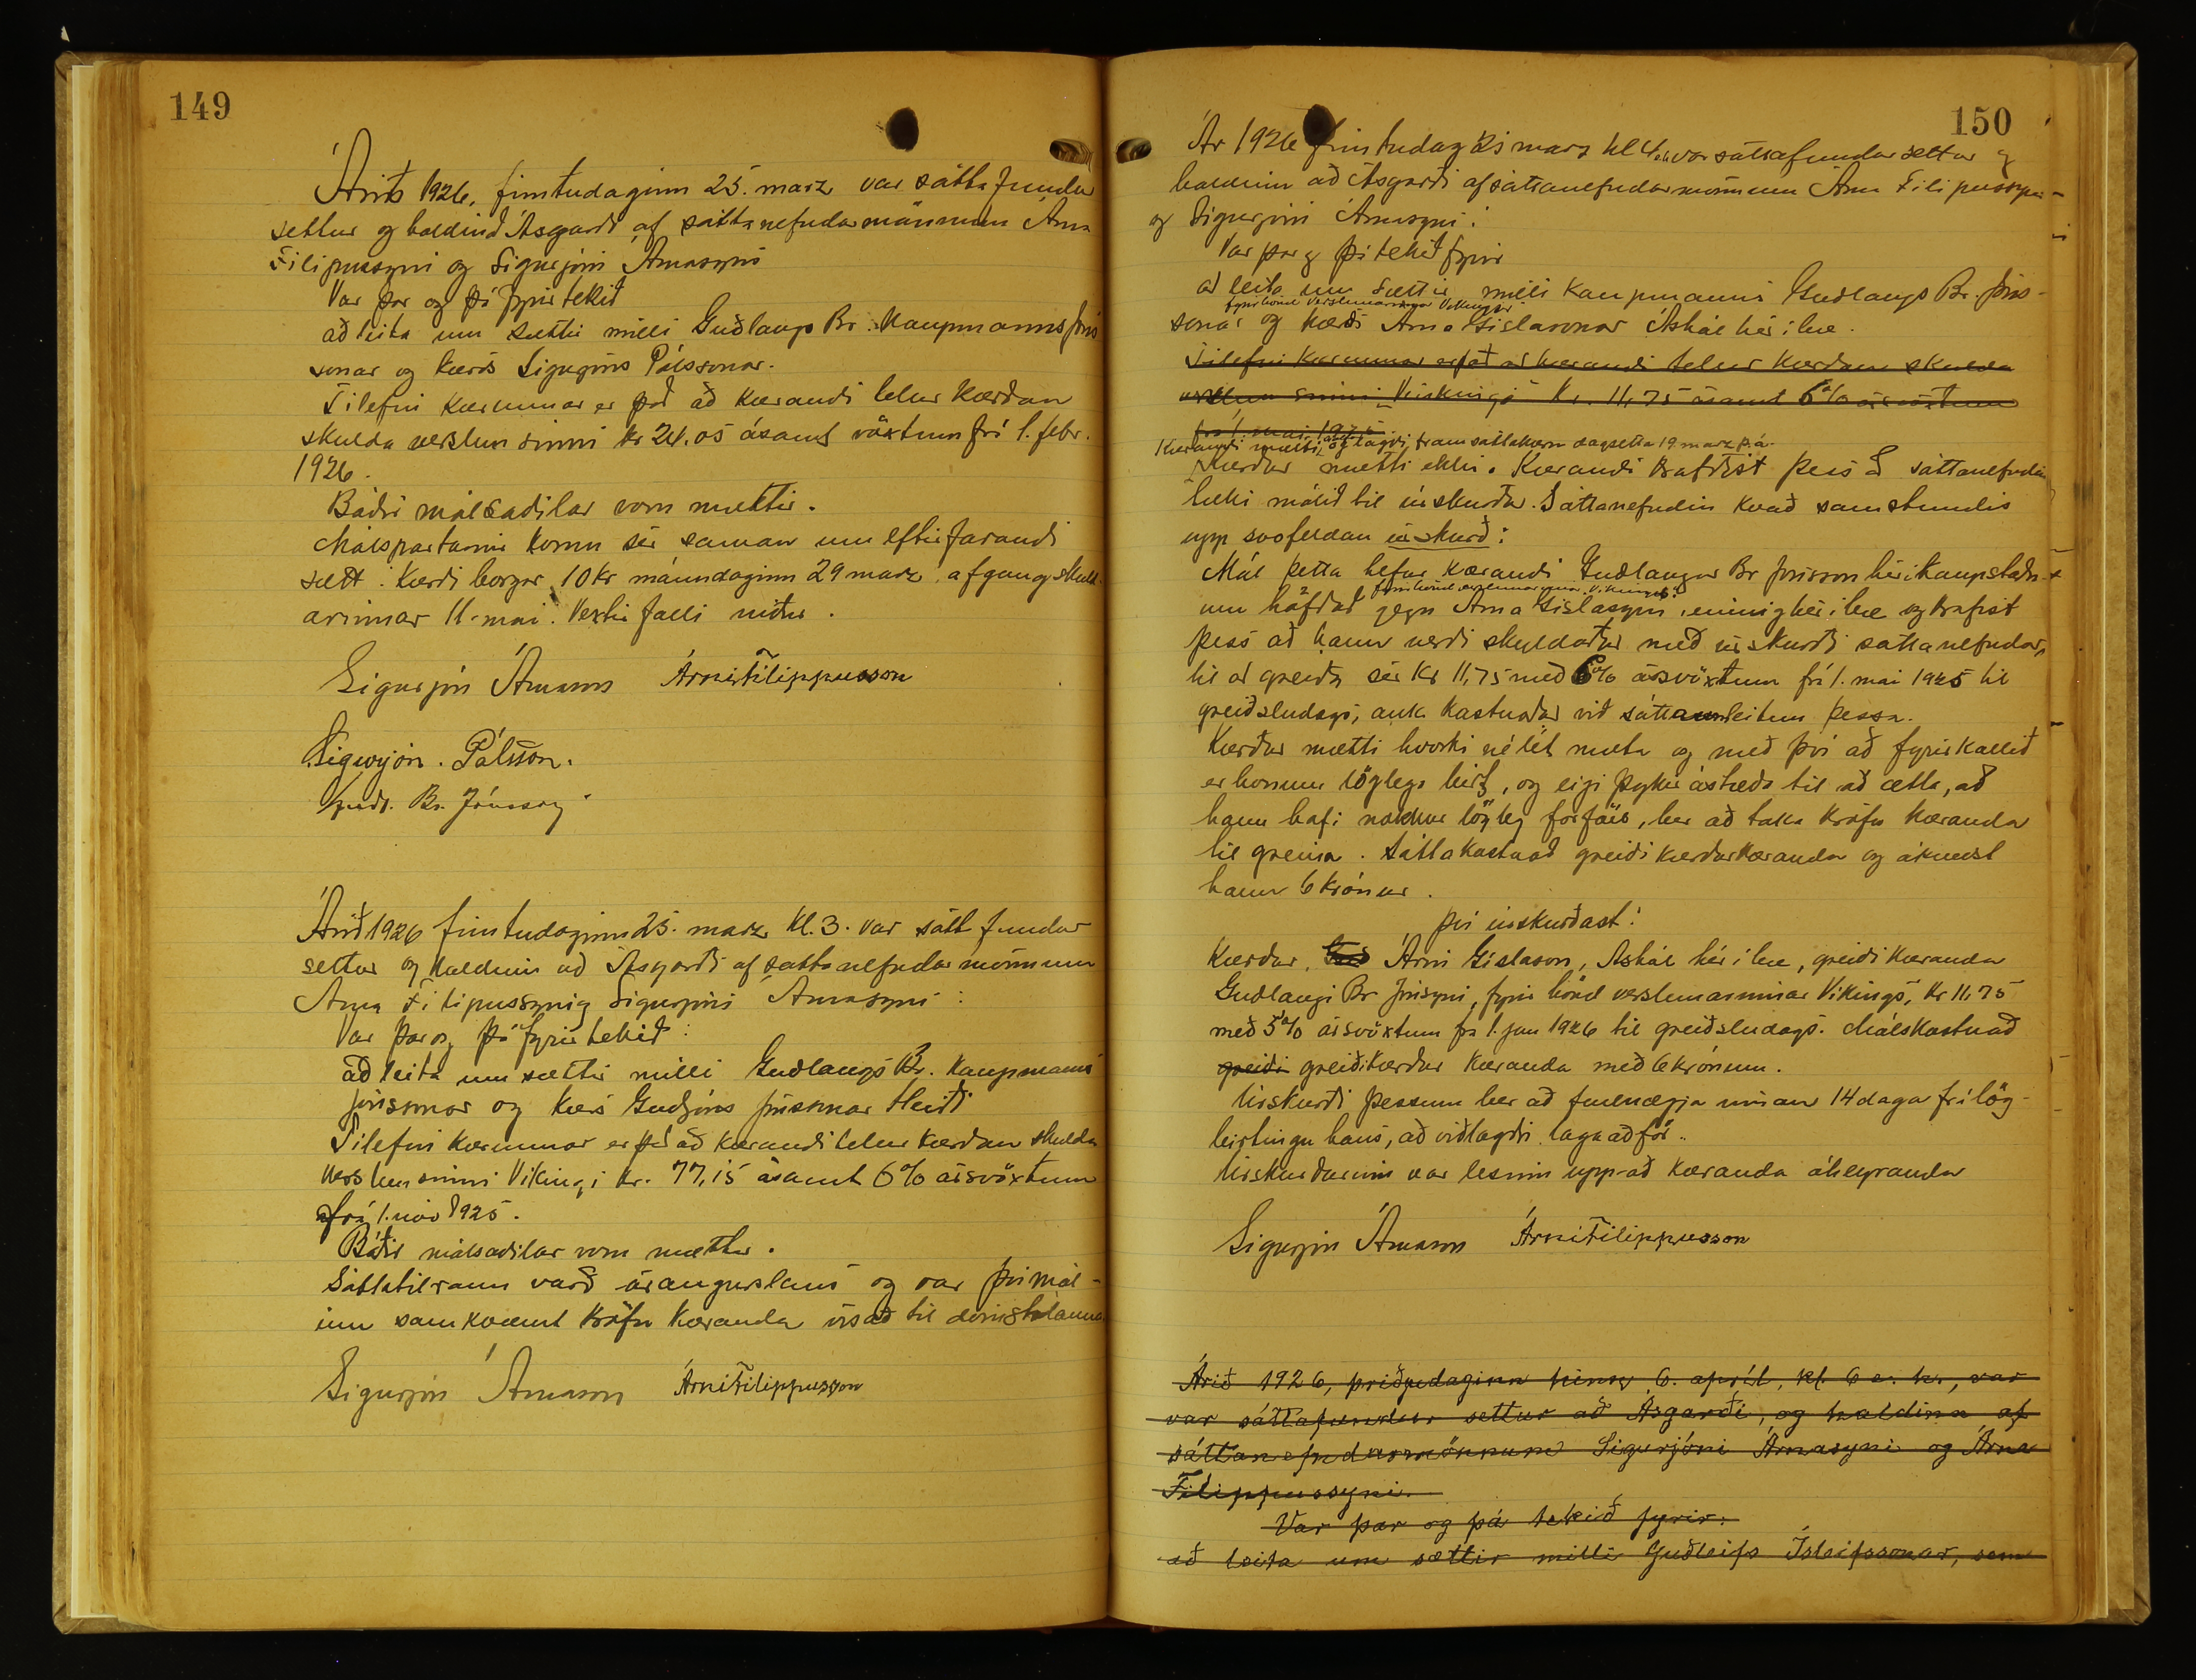 149
Árið 1926, fimtudaginn 25. marz var sáttafundur
settur og haldinn á Ásgarði af sáttanefndarmönnum Árna
Filipussyni og Sigurjóni Árnasyni
Var þar og þá fyrirtekið
að leita um sættir milli Guðlaugs Br. Kaupmanns Jóns
sonar og kærðs Sigurjóns Pálssonar.
Tilefni kærunnar er það að kærandi telur kærðan
skulda verslun sinni kr 24.05 ásamt vöxtum frá 1. febr.
1926.
Báðir málsaðilar voru mættir.
Málspartarnir komu sér saman um eftirfarandi
sætt: Kærði borgar 10 kr mánudaginn 29 marz, afgang skuld
arinnar 11. mai. Vextir falli niður.
Sigurjón Árnason Árni Filippusson
Sigurjón. Pálsson.
Guðl. Br. Jónsson
Árið 1926 fimtudaginn 25. marz kl. 3. var sáttfundur
settur og haldinn að Ásgarði af sáttanefndarmönnum
Árna Filipussyni og Sigurjóni Árnasyni:
Var þar og þá fyrirtekið:
að leita um sættir milli Guðlaugs Br. Kaupmanns
Jónssonar og kærðs Guðjóns Jónssonar Heiði
Tilefni kærunnar er það að kærandi telur kærðan skulda
verslun sinni Vikingi kr. 77,15 ásamt 6% ársvöxtum
frá 1. nóv 1925.
Báðir málsaðilar voru mættir.
Sáttatilraun varð árangurslaus og var því mál-
inu samkvæmt kröfu kæranda vísað til dómstólanna
Sigurjón Árnason Árni Filippusson
150
Ár 1926 fimtudag 25 marz kl 4 e.h. var sáttafundur settur og
haldinn að Ásgarði af sáttanefndarmönnum Árna Filipussyni
og Sigurjóni Árnasyni:
Var þar og þá tekið fyrir
að leita um sættir milli kaupmanns Guðlaugs Br. Jóns-
fyrir hönd verslunarinnar Vikingur
sonar og kærðs Árna Gíslasonar Áshól hér í bæ.
Tilefni kærunnar er það að kærandi telur kærðan skulda
verslun sinni Víkingi kr. 11,75 ásamt 6% ársvöxtum
frá 1. mai 1925
Kærandi mætti og lagði fram sáttakæru dagsetta 19. marz þ.á.
Kærður mætti ekki. Kærandi krafðist þess að sáttanefndin
tæki málið til úrskurðar. Sáttanefndin kvað samstundis
upp svofeldan úrskurð:
Mál þetta hefur kærandi Guðlaugur Br Jónsson hér í kaupstaðn-
fyrir hönd verslunarinnar Vikingur
um höfðað gegn Árna Gíslasyni, einnig hér í bæ og krafist
þess að hann verði skyldaður með úrskurði sáttanefndar,
til að greiða sér kr 11,75 með 6% ársvöxtum frá 1. mai 1925 til
greiðsludags, auk kostnaðar við sáttaumleitun þessa.
Kærður mætti hvorki né lét mæta og með því að fyrirkallið
er honum löglega birt, og eigi þykir ástæða til að ætla, að
hann hafi nokkur lögleg forföll, ber að taka kröfu kæranda
til greina. Sáttakostnað greiði kærður kæranda og ákveðst
hann 6 krónur.
Því úrskurðast:
Kærður, Árni Gíslason, Ashól hér í bæ, greiði kæranda
Guðlaugi Br Jónsyni, fyrir hönd verslunarinnar Víkings, kr 11,75
með 5% ársvöxtum frá 1. jan 1926 til greiðsludags. Málskostnað
greiði greiði kærður kæranda með 6 krónum.
Úrskurði þessum ber að fullnægja innan 14 daga frá lög-
birtingu hans, að viðlagðri lagaaðför.
Úrskurðurinn var lesinn upp að kæranda áheyranda
Sigurjón Árnason Árni Filippusson
Árið 1926, þriðjudaginn hinn 6. apríl, kl. 6 e. h., var
var sáttafundur settur að Ásgarði, og haldinn af
sáttanefndarmönnum Sigurjóni Árnasyni og Árna
Filippussyni.
Var þar og þá tekið fyrir:
að leita um sættir milli Guðleifs Ísleifssonar, sem